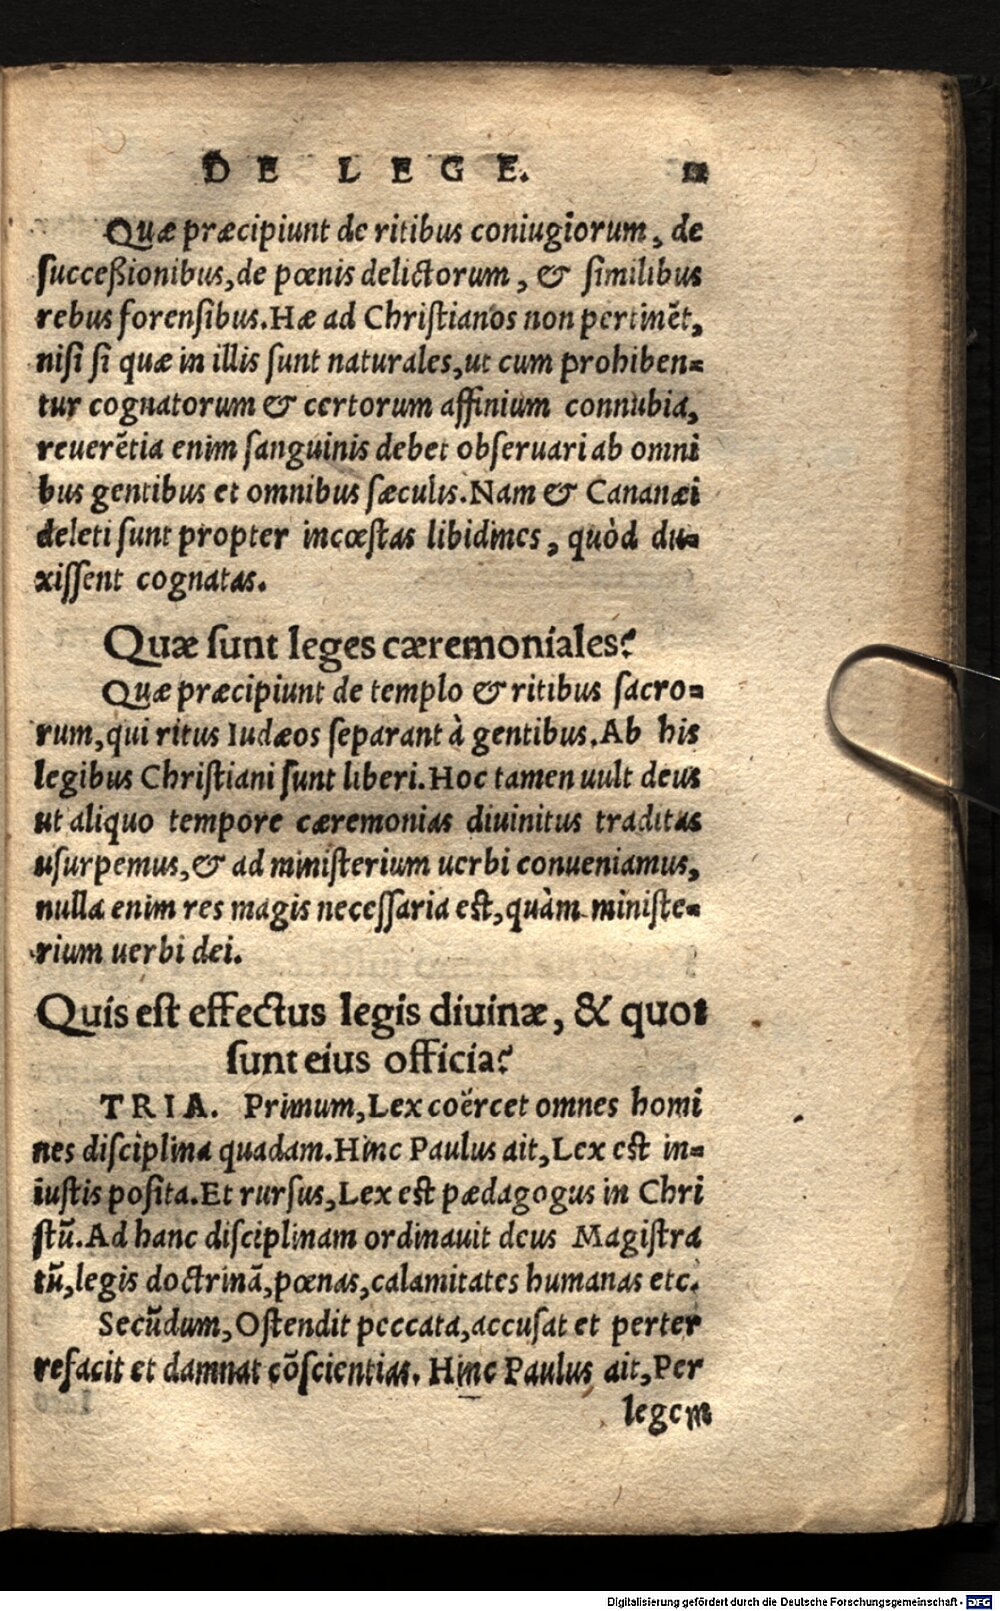 DE LEGE.
Quæ præcipiunt de ritibus coniugiorum, de
succeßionibus, de pœnis delictorum, & similibus
rebus forensibus. Hæ ad Christianos non pertinẽt,
nisi si quæ in illis sunt naturales, ut cum prohiben=
tur cognatorum & certorum affinium connubia,
reuerẽtia enim sanguinis debet obseruari ab omni
bus gentibus et omnibus sæculis. Nam & Cananæi
deleti sunt propter incœstas libidines, quòd du=
xissent cognatas.
Quæ sunt leges cæremoniales?
Quæ præcipiunt de templo & ritibus sacro=
rum, qui ritus Iudæos separant à gentibus. Ab his
legibus Christiani sunt liberi. Hoc tamen uult deus
ut aliquo tempore cæremonias diuinitus traditas
usurpemus, & ad ministerium uerbi conueniamus,
nulla enim res magis necessaria est, quàm ministe=
rium uerbi dei.
Quis est effectus legis diuinæ, & quot
sunt eius officia?
TRIA. Primum, Lex coërcet omnes homi
nes disciplina quadam. Hinc Paulus ait, Lex est in=
iustis posita. Et rursus, Lex est pædagogus in Chri
stũ. Ad hanc disciplinam ordinauit deus Magistra
tũ, legis doctrinã, pœnas, calamitates humanas etc.
Secũdum, Ostendit peccata, accusat et perter
refacit et damnat cõscientias. Hinc Paulus ait, Per
legem
Digitalisierung gefördert durch die Deutsche Forschungsgemeinschaft - DFG